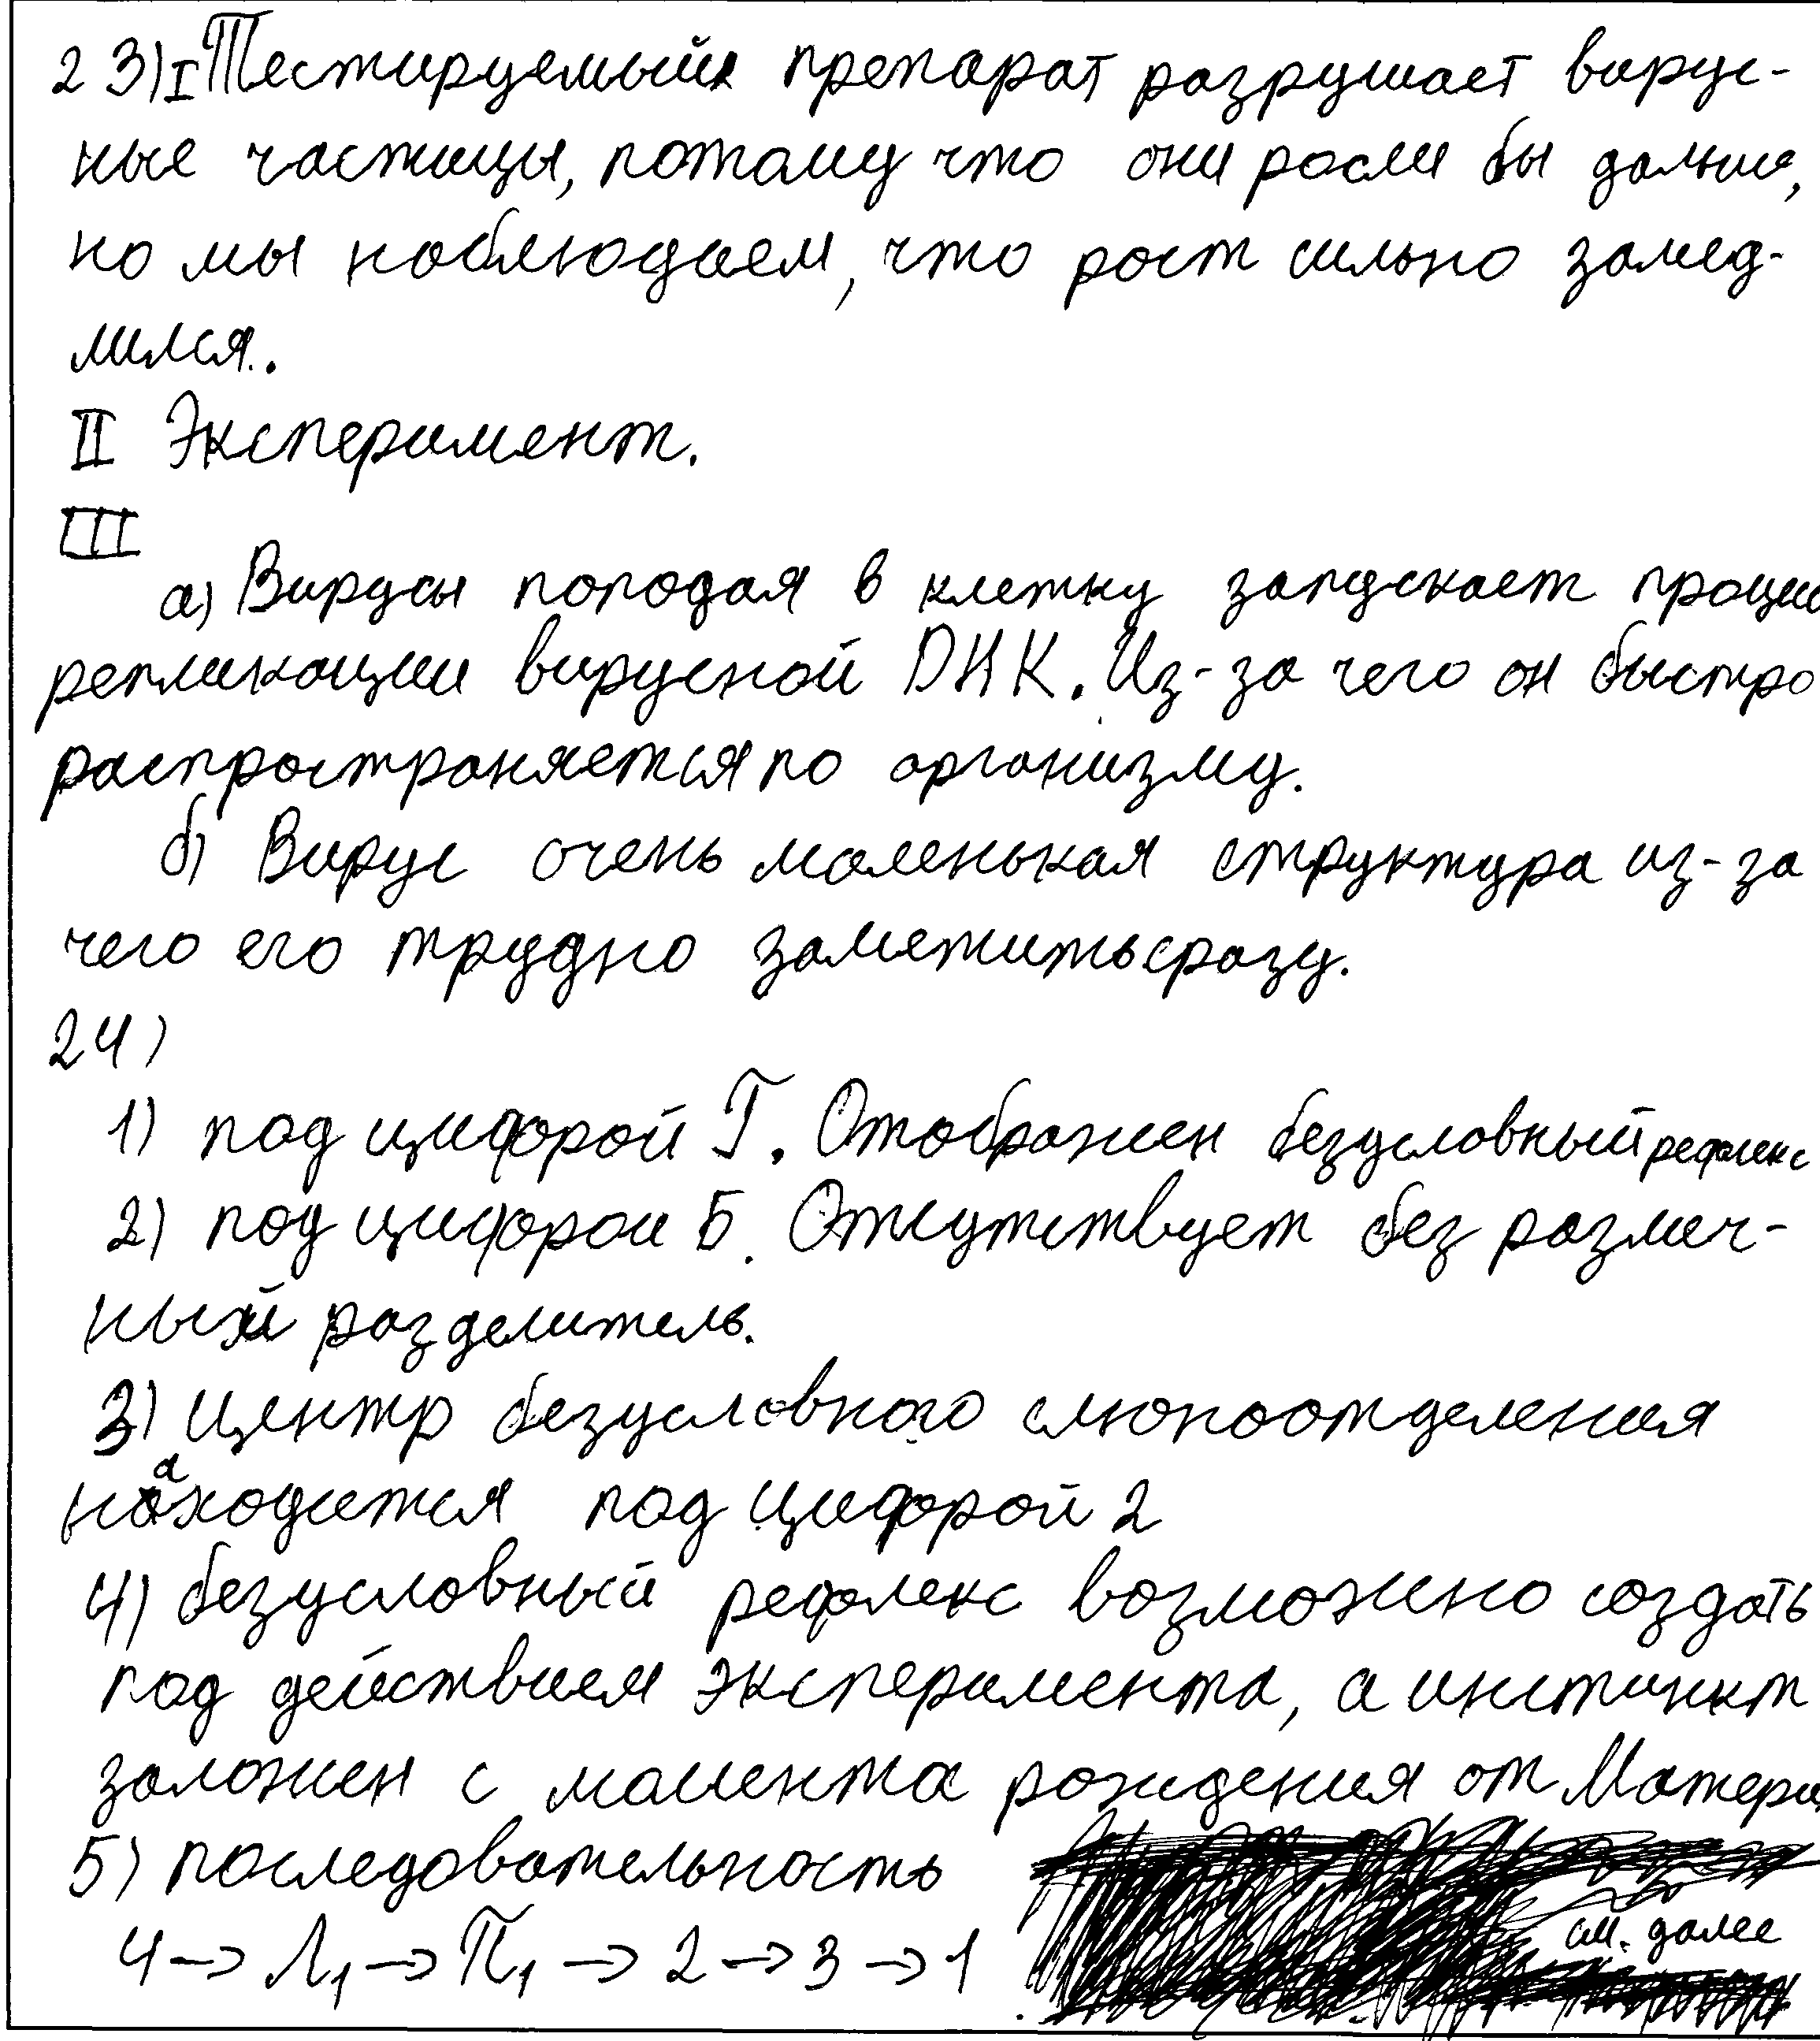 23) I Тестируемый препарат разрушает вирус-
ные частицы, потому что они росли бы дальше,
но мы наблюдаем, что рост сильно замед-
лился.
II Эксперимент.
III
а) Вирусы попадая в клетку запускает процес
репликации вирусной ДНК. Из-за чего он быстро
распространяется по организму.
б) Вирус очень маленькая структура из-за
чего его трудно заметить сразу.
24)
1) под цифрой Г. Отображен безусловный рефлекс
2) под цифрой Б. Отсутствует без различ-
ный разделитель.
3) Центр безусловного слюноотделения
находится под цифрой 2
4) безусловный рефлекс возможно создать
под действием эксперимента, а инстинкт
заложен с момента рождения от Матери
5) последовательность
4 -> Л1 -> П1 -> 2 -> 3 -> 1
см. далее